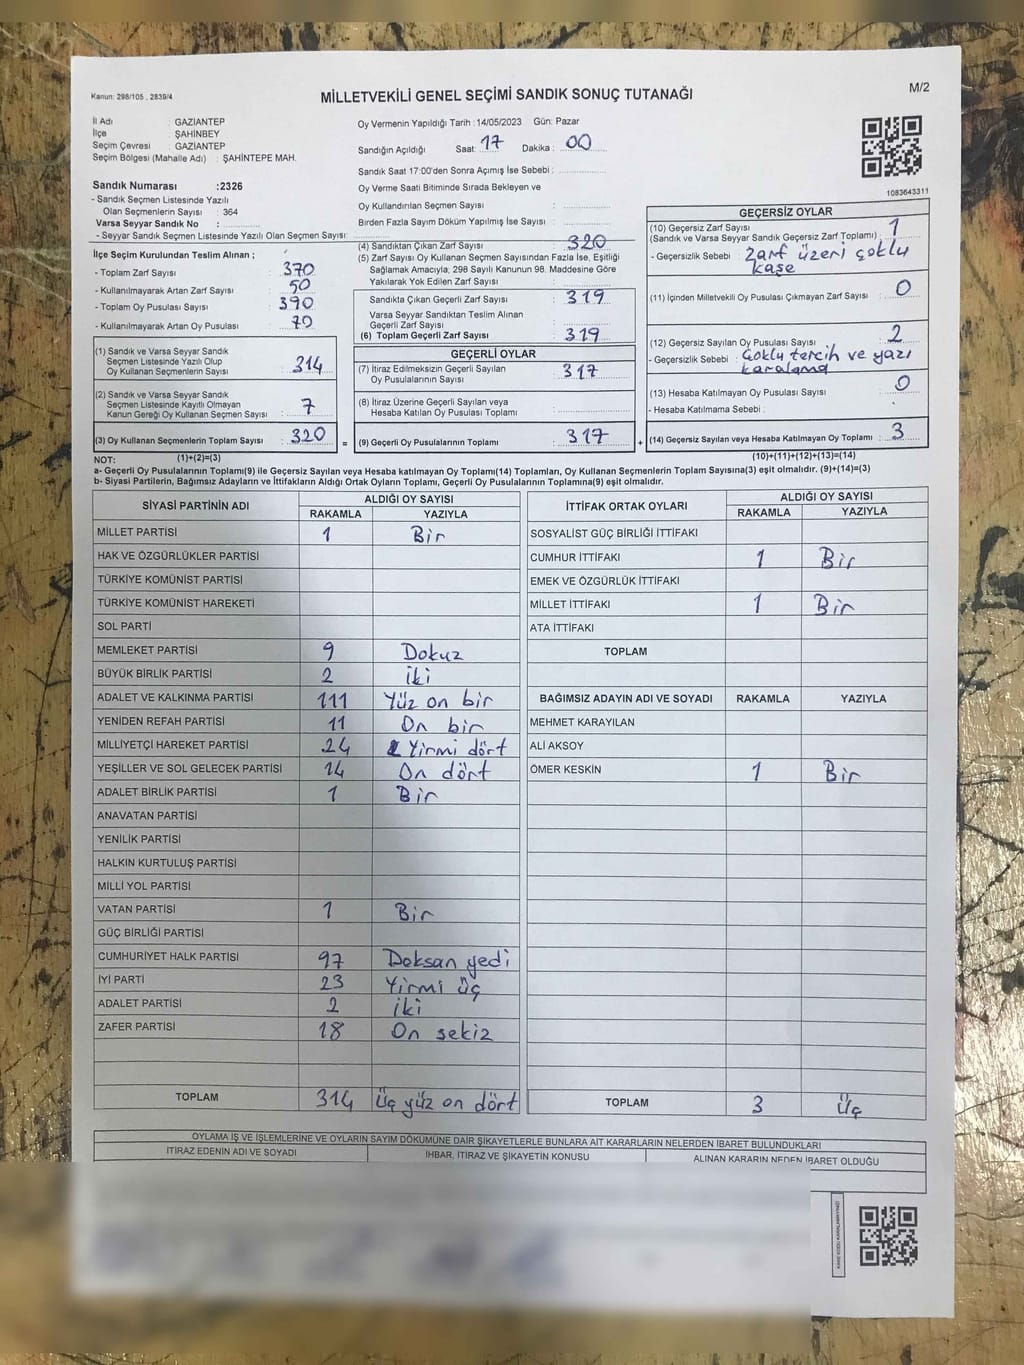 Kanun: 298/105 , 2839/4
MİLLETVEKİLİ GENEL SEÇİMİ SANDIK SONUÇ TUTANAĞI
M/2
İl Adı : GAZİANTEP
İlçe : ŞAHİNBEY
Seçim Çevresi : GAZİANTEP
Seçim Bölgesi (Mahalle Adı) : ŞAHİNTEPE MAH.
Sandık Numarası :2326
- Sandık Seçmen Listesinde Yazılı
Olan Seçmenlerin Sayısı : 364
Varsa Seyyar Sandık No :
- Seyyar Sandık Seçmen Listesinde Yazılı Olan Seçmen Sayısı:
Oy Vermenin Yapıldığı Tarih :14/05/2023 Gün: Pazar
Sandığın Açıldığı Saat: 17 Dakika : 00
Sandık Saat 17:00'den Sonra Açımış İse Sebebi :
Oy Verme Saati Bitiminde Sırada Bekleyen ve
Oy Kullandırılan Seçmen Sayısı :
Birden Fazla Sayım Döküm Yapılmış İse Sayısı :
1083643311
İlçe Seçim Kurulundan Teslim Alınan ;
- Toplam Zarf Sayısı : 370
- Kullanılmayarak Artan Zarf Sayısı : 50
- Toplam Oy Pusulası Sayısı : 390
- Kullanılmayarak Artan Oy Pusulası : 70
(1) Sandık ve Varsa Seyyar Sandık
Seçmen Listesinde Yazılı Olup
Oy Kullanan Seçmenlerin Sayısı : 314
(2) Sandık ve Varsa Seyyar Sandık
Seçmen Listesinde Kayıtlı Olmayan
Kanun Gereği Oy Kullanan Seçmen Sayısı : 7
(3) Oy Kullanan Seçmenlerin Toplam Sayısı : 320 =
(1)+(2)=(3)
(4) Sandıktan Çıkan Zarf Sayısı : 320
(5) Zarf Sayısı Oy Kullanan Seçmen Sayısından Fazla İse, Eşitliği
Sağlamak Amacıyla, 298 Sayılı Kanunun 98. Maddesine Göre
Yakılarak Yok Edilen Zarf Sayısı :
Sandıkta Çıkan Geçerli Zarf Sayısı : 319
Varsa Seyyar Sandıktan Teslim Alınan
Geçerli Zarf Sayısı :
(6) Toplam Geçerli Zarf Sayısı : 319
GEÇERLİ OYLAR
(7) İtiraz Edilmeksizin Geçerli Sayılan
Oy Pusulalarının Sayısı : 317
(8) İtiraz Üzerine Geçerli Sayılan veya
Hesaba Katılan Oy Pusulası Toplamı :
(9) Geçerli Oy Pusulalarının Toplamı : 317 +
GEÇERSİZ OYLAR
(10) Geçersiz Zarf Sayısı : 1
(Sandık ve Varsa Seyyar Sandık Geçersiz Zarf Toplamı)
- Geçersizlik Sebebi : Zarf üzeri çoklu
kaşe
(11) İçinden Milletvekili Oy Pusulası Çıkmayan Zarf Sayısı : 0
(12) Geçersiz Sayılan Oy Pusulası Sayısı : 2
- Geçersizlik Sebebi : Çoklu tercih ve yazı
karalama
(13) Hesaba Katılmayan Oy Pusulası Sayısı : 0
- Hesaba Katılmama Sebebi :
(14) Geçersiz Sayılan veya Hesaba Katılmayan Oy Toplamı : 3
(10)+(11)+(12)+(13)=(14)
NOT:
a- Geçerli Oy Pusulalarının Toplamı(9) ile Geçersiz Sayılan veya Hesaba katılmayan Oy Toplamı(14) Toplamları, Oy Kullanan Seçmenlerin Toplam Sayısına(3) eşit olmalıdır. (9)+(14)=(3)
b- Siyasi Partilerin, Bağımsız Adayların ve İttifakların Aldığı Ortak Oyların Toplamı, Geçerli Oy Pusulalarının Toplamına(9) eşit olmalıdır.
SİYASİ PARTİNİN ADI ALDIĞI OY SAYISI
RAKAMLA YAZIYLA
MİLLET PARTİSİ 1 Bir
HAK VE ÖZGÜRLÜKLER PARTİSİ
TÜRKİYE KOMÜNİST PARTİSİ
TÜRKİYE KOMÜNİST HAREKETİ
SOL PARTİ
MEMLEKET PARTİSİ 9 Dokuz
BÜYÜK BİRLİK PARTİSİ 2 İki
ADALET VE KALKINMA PARTİSİ 111 Yüz on bir
YENİDEN REFAH PARTİSİ 11 On bir
MİLLİYETÇİ HAREKET PARTİSİ 24 Yirmi dört
YEŞİLLER VE SOL GELECEK PARTİSİ 14 On dört
ADALET BİRLİK PARTİSİ 1 Bir
ANAVATAN PARTİSİ
YENİLİK PARTİSİ
HALKIN KURTULUŞ PARTİSİ
MİLLİ YOL PARTİSİ
VATAN PARTİSİ 1 Bir
GÜÇ BİRLİĞİ PARTİSİ
CUMHURİYET HALK PARTİSİ 97 Doksan yedi
İYİ PARTİ 23 Yirmi üç
ADALET PARTİSİ 2 İki
ZAFER PARTİSİ 18 On sekiz
TOPLAM 314 Üç yüz on dört
İTTİFAK ORTAK OYLARI ALDIĞI OY SAYISI
RAKAMLA YAZIYLA
SOSYALİST GÜÇ BİRLİĞİ İTTİFAKI
CUMHUR İTTİFAKI 1 Bir
EMEK VE ÖZGÜRLÜK İTTİFAKI
MİLLET İTTİFAKI 1 Bir
ATA İTTİFAKI
TOPLAM
BAĞIMSIZ ADAYIN ADI VE SOYADI RAKAMLA YAZIYLA
MEHMET KARAYILAN
ALİ AKSOY
ÖMER KESKİN 1 Bir
TOPLAM 3 Üç
OYLAMA İŞ VE İŞLEMLERİNE VE OYLARIN SAYIM DÖKÜMÜNE DAİR ŞİKAYETLERLE BUNLARA AİT KARARLARIN NELERDEN İBARET BULUNDUKLARI
İTİRAZ EDENİN ADI VE SOYADI İHBAR, İTİRAZ VE ŞİKAYETİN KONUSU ALINAN KARARIN NEDEN İBARET OLDUĞU